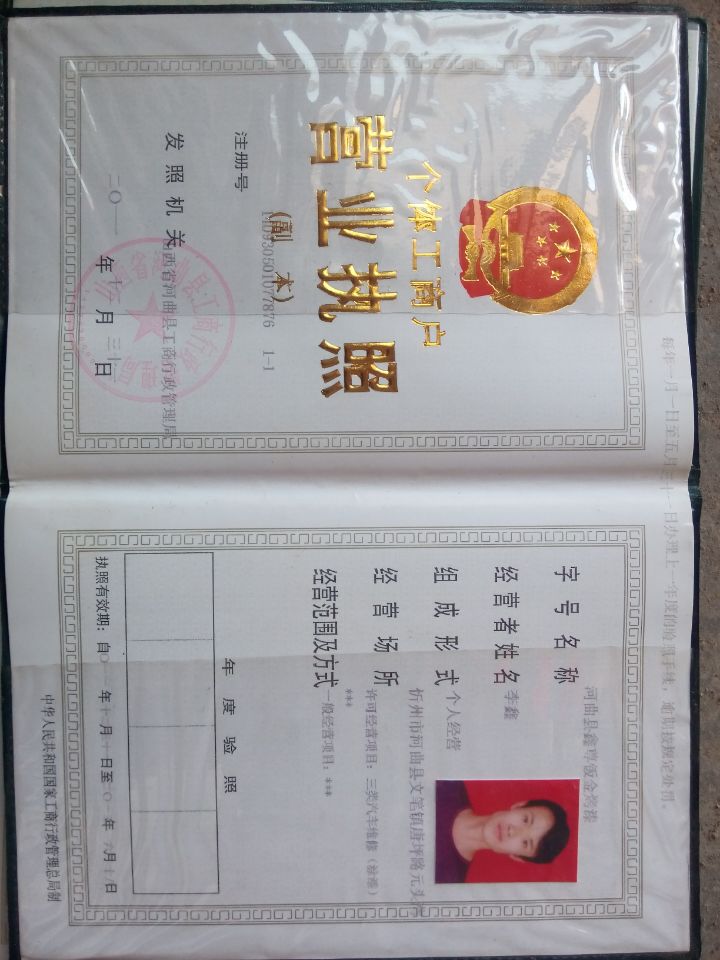 个体工商户
营业执照
(副 本)
注册号
1-1
发照机关
山西省河曲县工商行政管理局
年 月 三十 日
字号名称
经营者姓名 李鑫
组成形式 个人经营
经营场所 忻州市河曲县文笔镇唐坪路元头
经营范围及方式
许可经营项目：三类汽车维修
***
一般经营项目：***
年度验照
执照有效期：自
中华人民共和国国家工商行政管理总局制
每年一月一日至五月三十一日办理上一年度的验照手续，逾期按规定处罚。